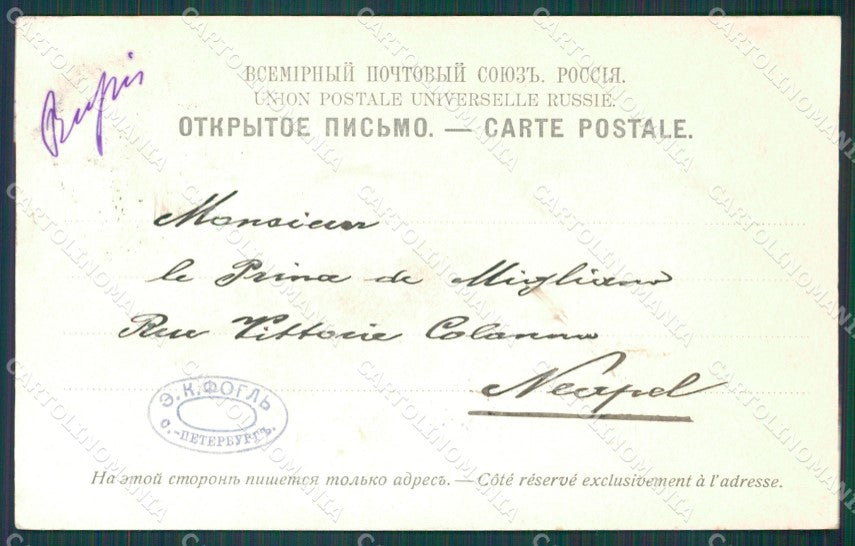 ВСЕМІРНЫЙ ПОЧТОВЫЙ СОЮЗЪ. РОССІЯ.
UNION POSTALE UNIVERSELLE RUSSIE.
ОТКРЫТОЕ ПИСЬМО. — CARTE POSTALE.
Monsieur
le Prince de Migliano
Rue Vittorie Colanna
Neapel
Э. К. ФОГЛЬ
С.-ПЕТЕРБУРГЪ.
На этой сторонѣ пишется только адресъ. — Côté réservé exclusivement à l'adresse.
CARTOLINOMANIA